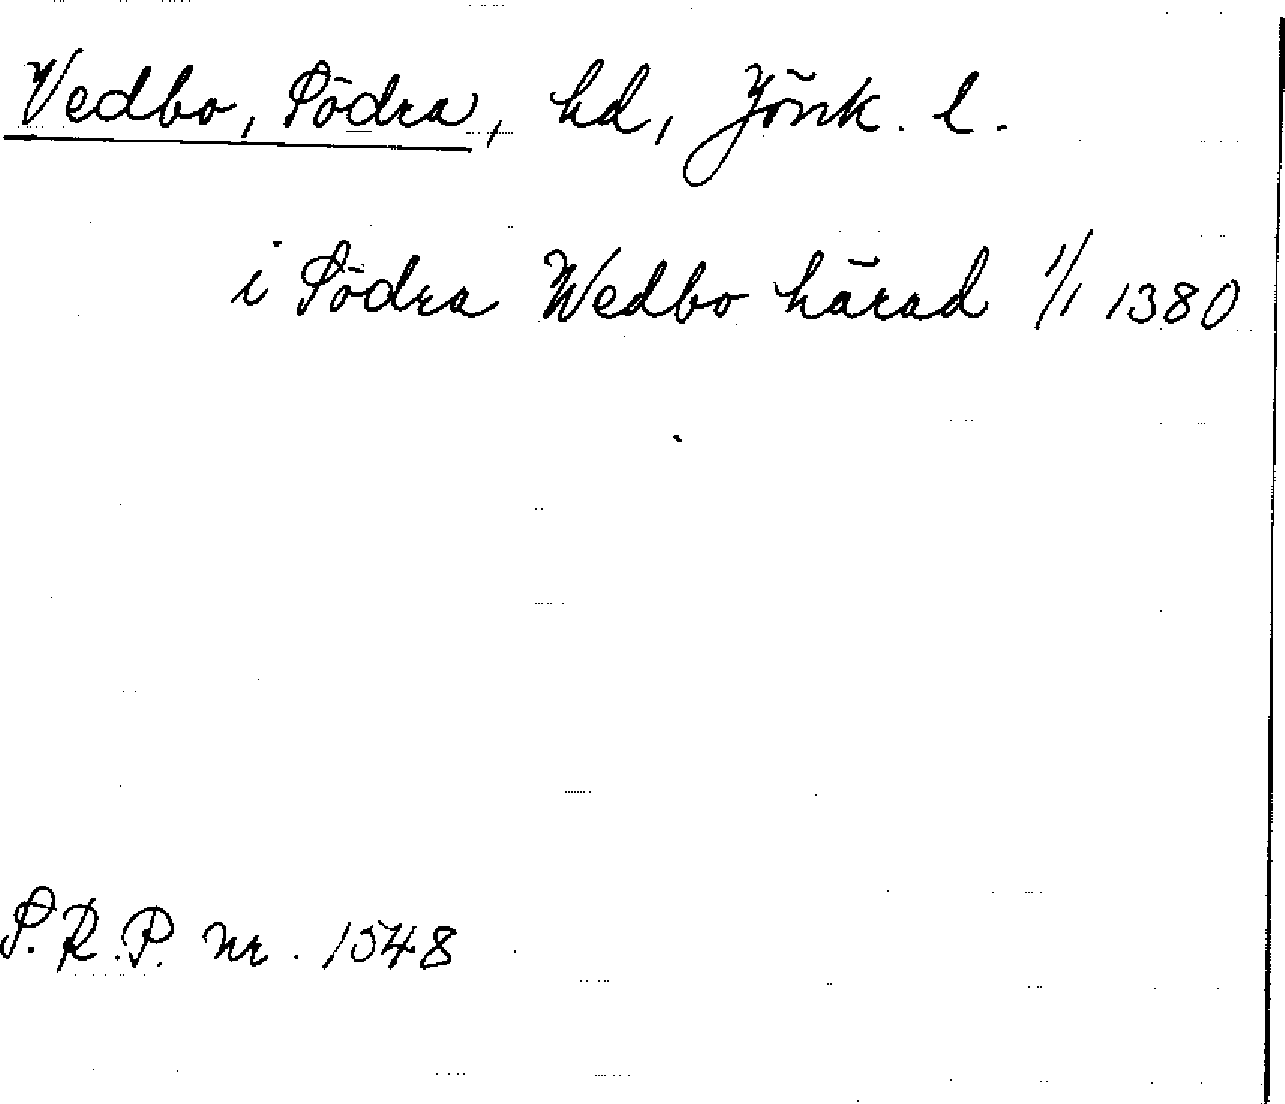 Vedbo, Södra, hd, Jönk. l.
i Södra Wedbo härad 1/1 1380
S.R.P. nr. 1548